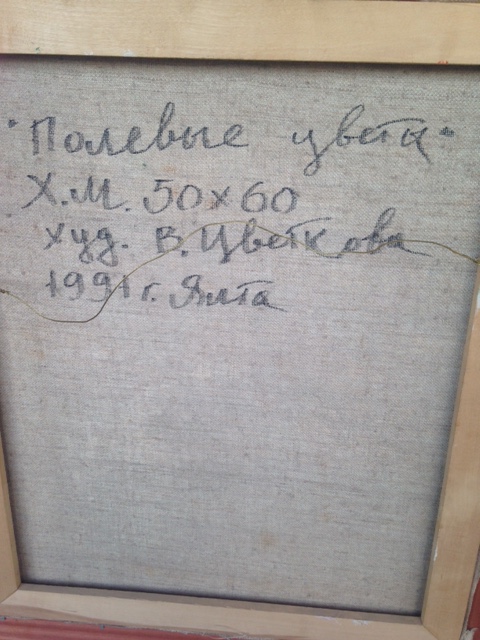 "Полевые цветы"
Х.М. 50х60
худ. В. Цветкова
1991 г. Ялта